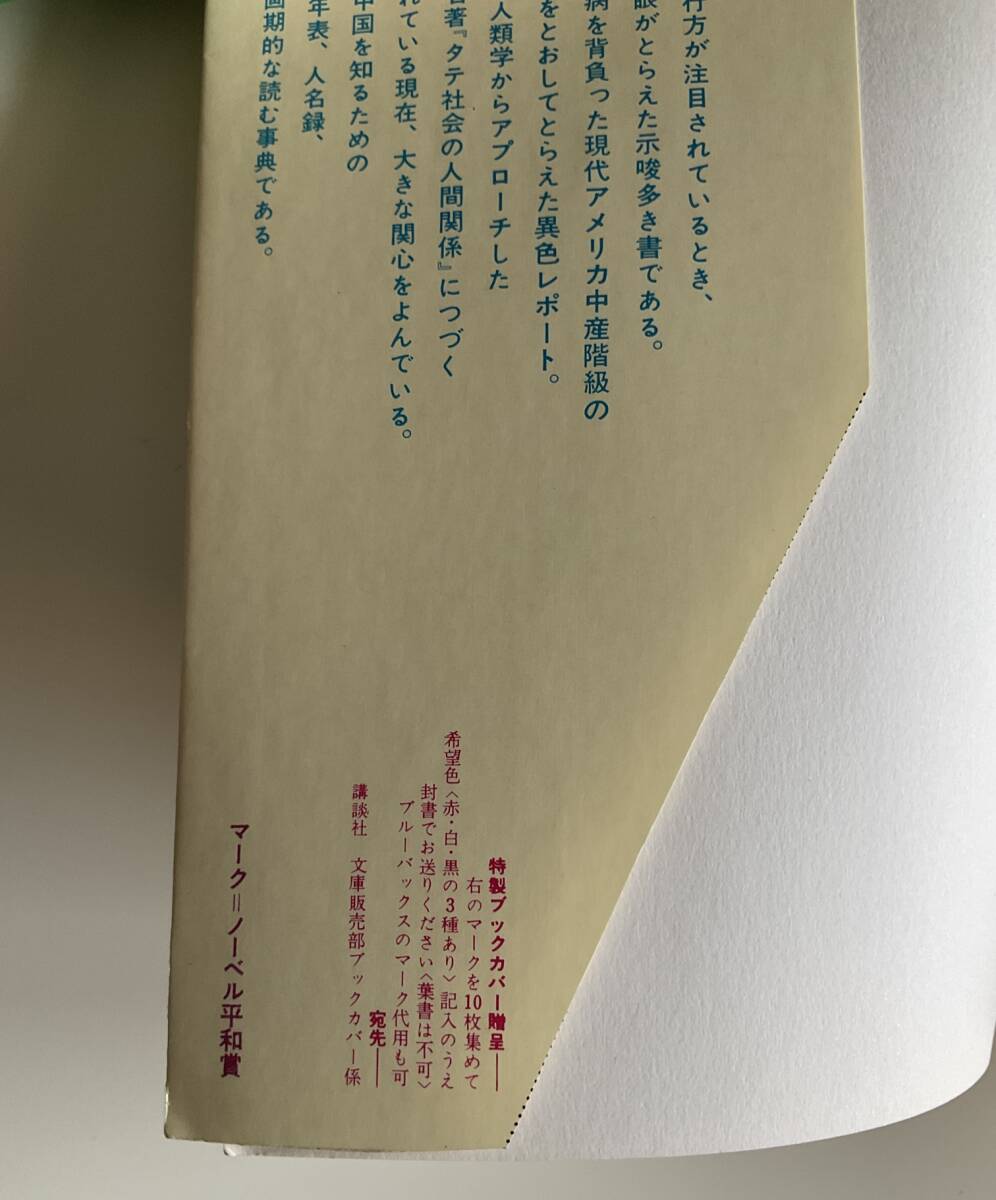 行方が注目されているとき、
眼がとらえた示唆多き書である。
病を背負った現代アメリカ中産階級の
をとおしてとらえた異色レポート。
人類学からアプローチした
名著『タテ社会の人間関係』につづく
れている現在、大きな関心をよんでいる。
中国を知るための
年表、人名録、
画期的な読む事典である。
特製ブックカバー贈呈——
右のマークを10枚集めて
希望色〈赤・白・黒の3種あり〉記入のうえ
封書でお送りください〈葉書は不可〉
ブルーバックスのマーク代用も可
宛先——
講談社 文庫販売部ブックカバー係
マーク＝ノーベル平和賞